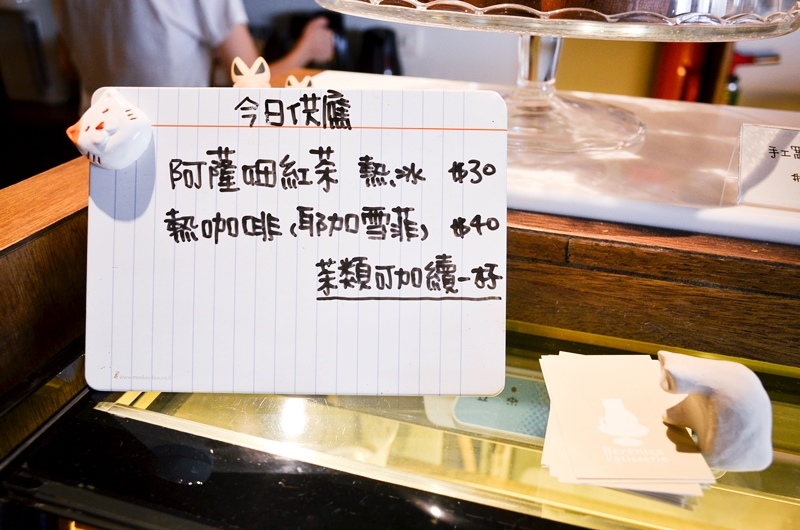 今日供應
阿薩姆紅茶 熱、冰 $30
熱咖啡(耶加雪菲) $40
茶類可加續一杯
手工
$